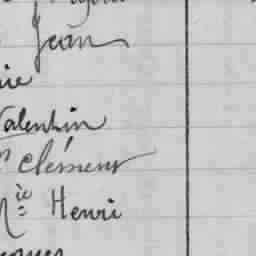 Jean
rie
Valentin
Clément
Mie Henri